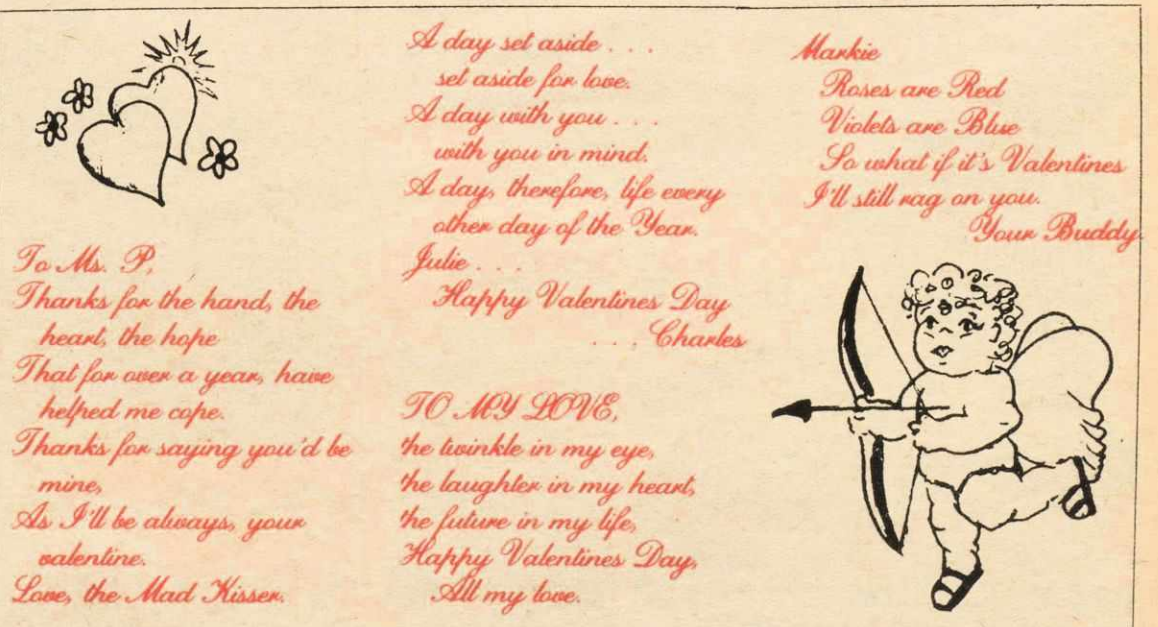 To Ms. P,
Thanks for the hand, the
heart, the hope
That for over a year, have
helped me cope.
Thanks for saying you'd be
mine,
As I'll be always, your
valentine.
Love, the Mad Kisser.
A day set aside . . .
set aside for love.
A day with you . . .
with you in mind.
A day, therefore, life every
other day of the Year.
Julie . . .
Happy Valentines Day
. . . Charles
TO MY LOVE,
the twinkle in my eye,
the laughter in my heart,
the future in my life,
Happy Valentines Day,
All my love.
Markie
Roses are Red
Violets are Blue
So what if it's Valentines
I'll still rag on you.
Your Buddy